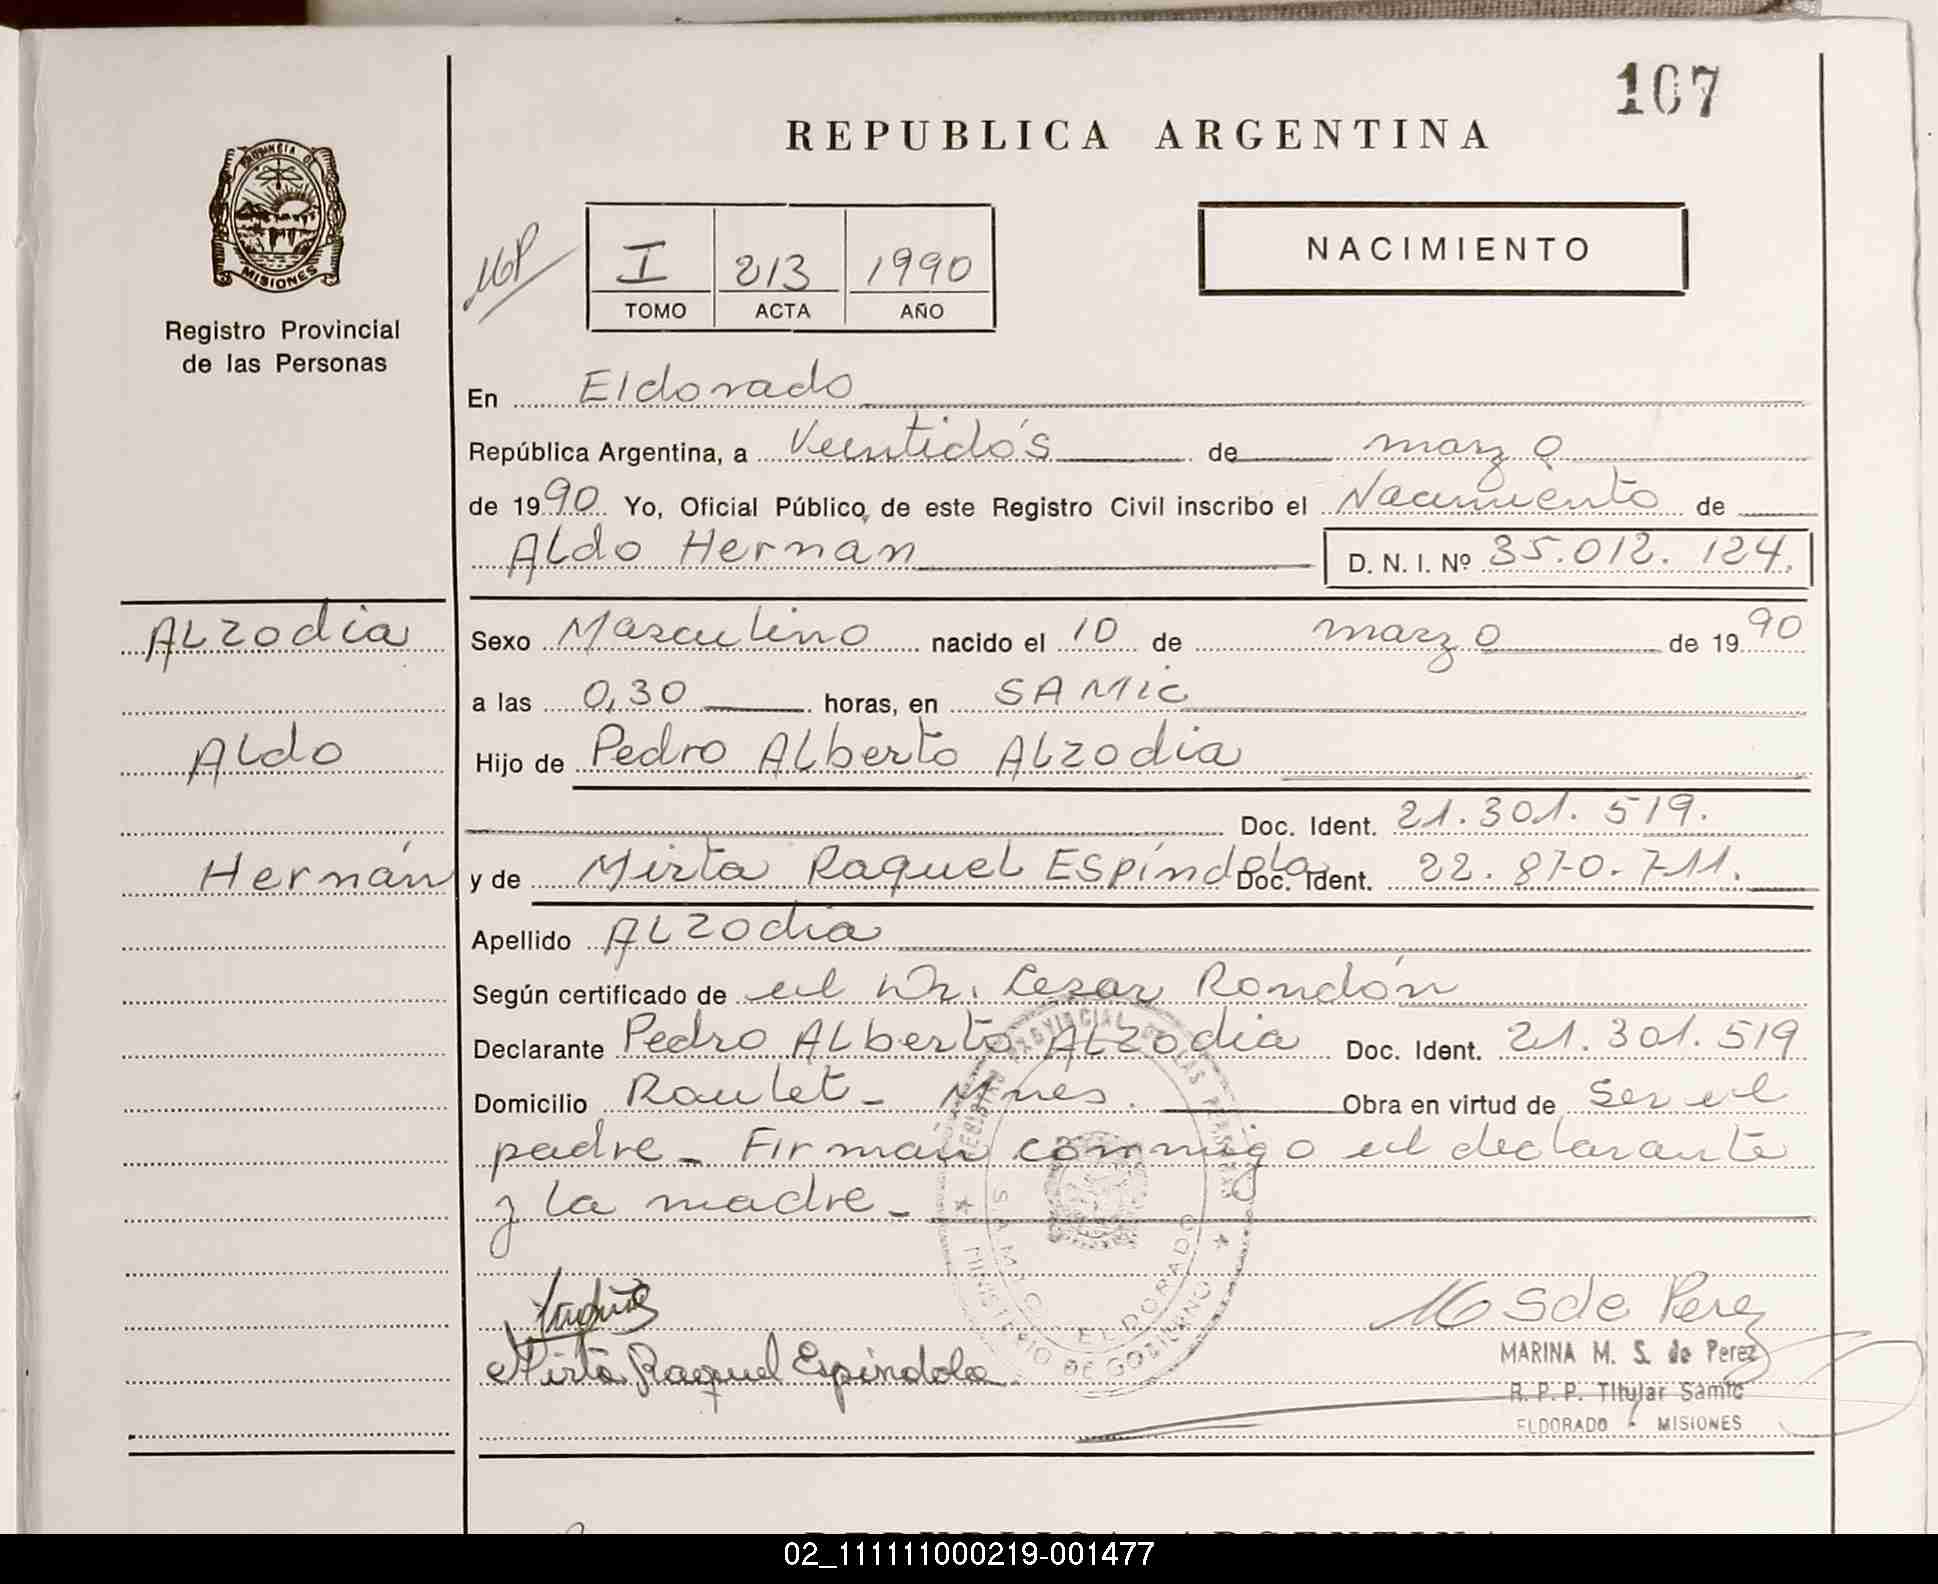 107
REPUBLICA ARGENTINA
PROVINCIA DE
MISIONES
Registro Provincial
de las Personas
I 213 1990
TOMO ACTA AÑO
NACIMIENTO
En Eldorado
República Argentina, a Veintidós de marzo
de 1990 Yo, Oficial Público, de este Registro Civil inscribo el Nacimiento de
Aldo Hernan D. N. I. Nº 35.012.124.
Alzodia
Aldo
Hernán
Sexo Masculino nacido el 10 de marzo de 1990
a las 0,30 horas, en SAMIC
Hijo de Pedro Alberto Alzodia
Doc. Ident. 21.301.519.
y de Mirta Raquel Espíndola Doc. Ident. 22.870.711.
Apellido Alzodia
Según certificado de el Dr. Cesar Rondón
Declarante Pedro Alberto Alzodia Doc. Ident. 21.301.519
Domicilio Roulet - Mnes. Obra en virtud de ser el
padre - Firman conmigo el declarante
y la madre -
REGISTRO PROVINCIAL DE LAS PERSONAS
S.A.M.I.C. ELDORADO
MINISTERIO DE GOBIERNO
Mirta Raquel Espíndola
M S de Perez
MARINA M. S. de Perez
R. P. P. Titular Samic
ELDORADO - MISIONES
REPUBLICA ARGENTINA
02_111111000219-001477